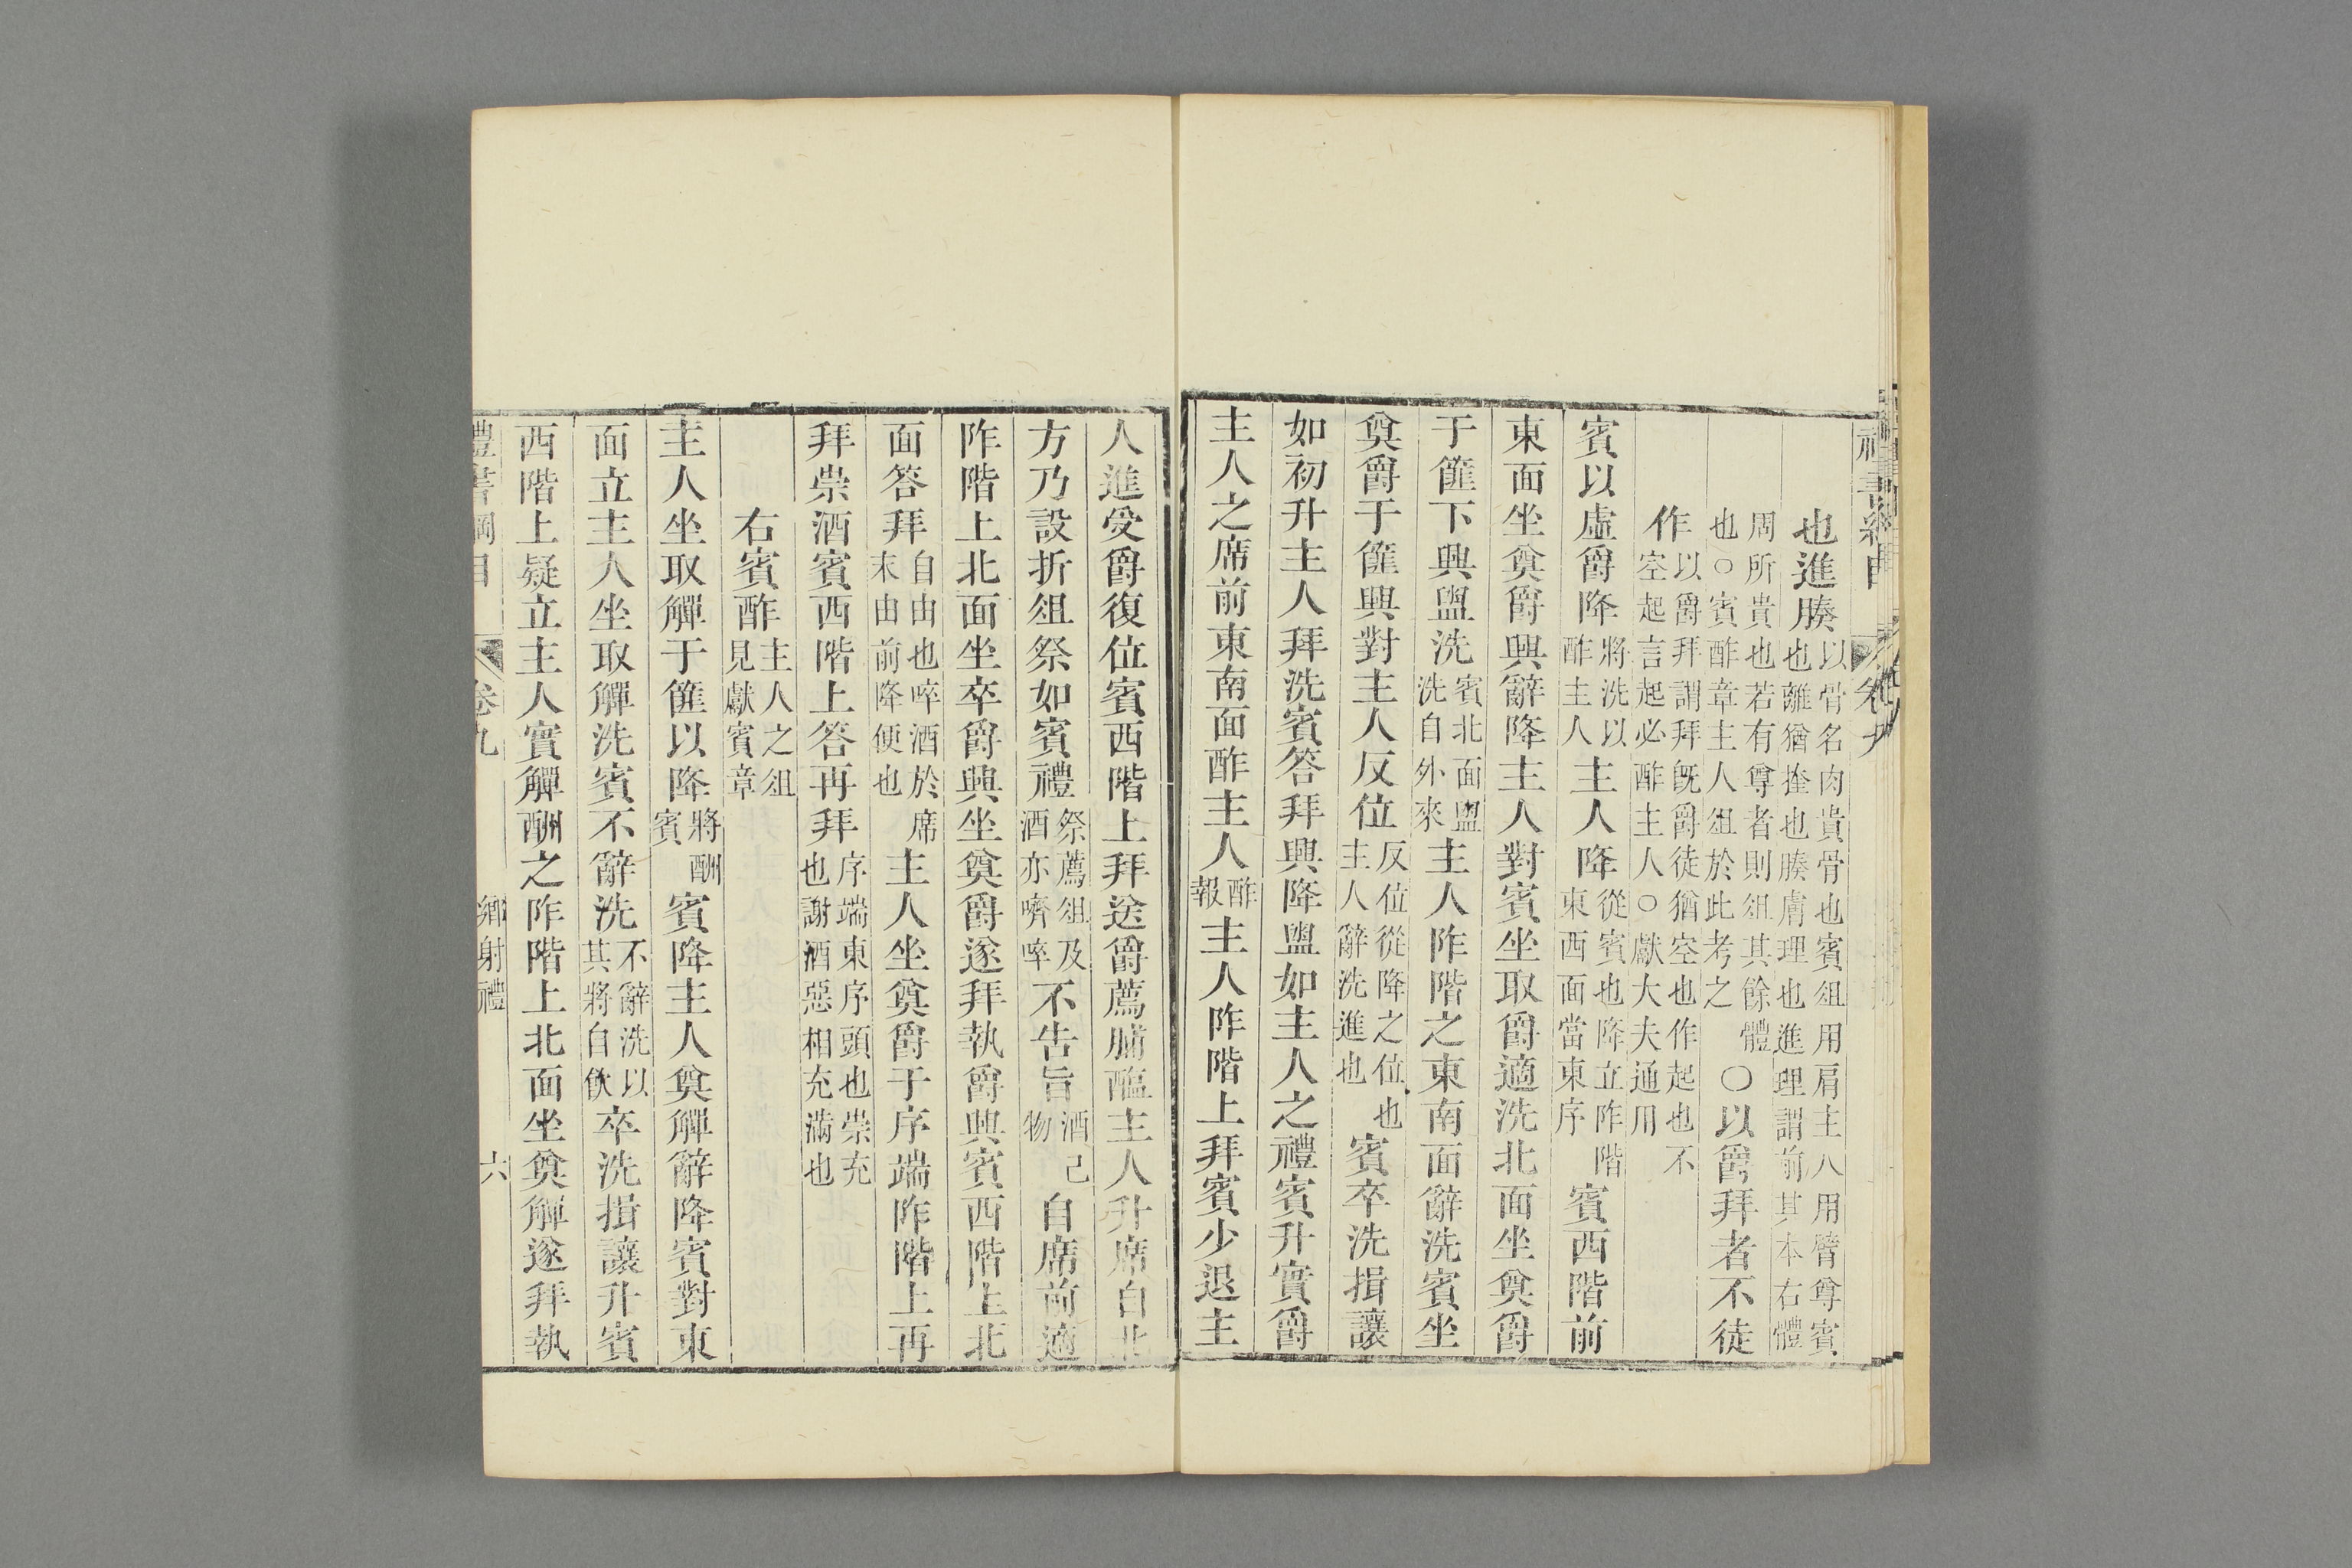 也進腠以骨名肉貴骨也賓俎用肩主人用臂尊賓也離猶㨒也腠膚理也進理謂前其本右體
周所貴也若有尊者則俎其餘體也○賓酢章主人俎於此考之○以爵拜者不徒
作以爵拜謂拜旣爵徒猶空也作起也不空起言起必酢主人○獻大夫通用
賓以虛爵降將洗以酢主人主人降從賓也降立阼階東西面當東序賓西階前
東面坐奠爵興辭降主人對賓坐取爵適洗北面坐奠爵
于篚下興盥洗賓北面盥洗自外來主人阼階之東南面辭洗賓坐
奠爵于篚興對主人反位反位從降之位也主人辭洗進也賓卒洗揖讓
如初升主人拜洗賓答拜興降盥如主人之禮賓升實爵
主人之席前東南面酢主人酢報主人阼階上拜賓少退主
人進受爵復位賓西階上拜送爵薦脯醢主人升席自北
方乃設折俎祭如賓禮祭薦俎及酒亦嚌啐不告旨酒己物自席前適
阼階上北面坐卒爵興坐奠爵遂拜執爵興賓西階上北
面答拜自由也啐酒於席末由前降便也主人坐奠爵于序端阼階上再
拜崇酒賓西階上答再拜序端東序頭也崇充也謝酒惡相充滿也
右賓酢主人之俎見獻賓章
主人坐取觶于篚以降將酬賓賓降主人奠觶辭降賓對東
面立主人坐取觶洗賓不辭洗不辭洗以其將自飲卒洗揖讓升賓
西階上疑立主人實觶酬之阼階上北面坐奠觶遂拜執
禮書綱目 卷九 鄉射禮 六